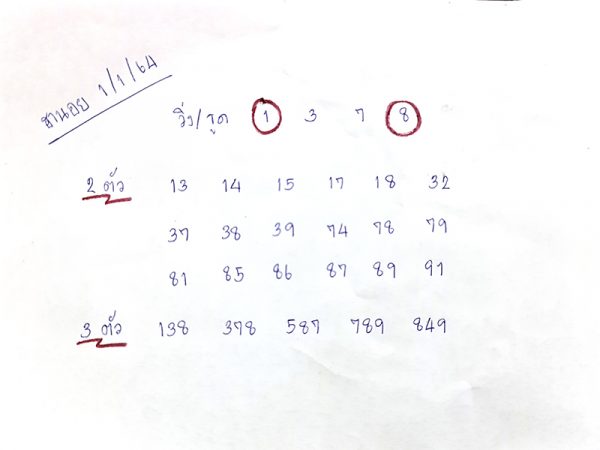 ฮานอย 1/1/64
วิ่ง/รูด 1 3 7 8
2 ตัว 13 14 15 17 18 32
37 38 39 74 78 79
81 85 86 87 89 91
3 ตัว 138 378 587 789 849